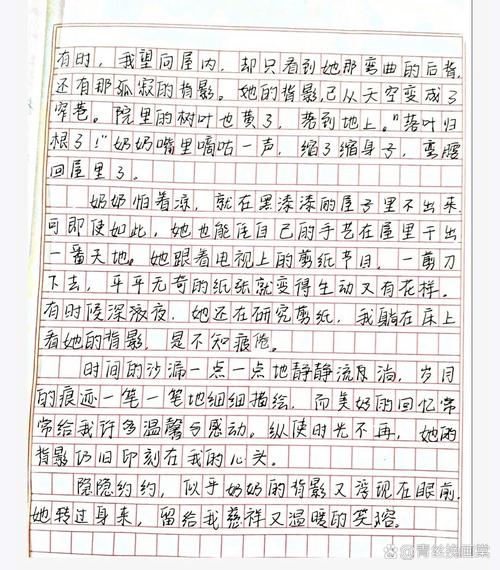 有时，我望向屋内，却只看到她那弯曲的后背，
还有那孤寂的背影。她的背影已从天空变成了
窄巷。院里的树叶也黄了，落到地上。"落叶归
根了！"奶奶嘴里嘀咕一声，缩了缩身子，弯腰
回屋里了。
奶奶怕着凉，就在黑漆漆的屋子里不出来
可即使如此，她也能凭自己的手艺在屋里干出
一番天地。她跟着电视上的剪纸节目，一剪刀
下去，平平无奇的纸张就变得生动又有花样。
有时候深夜，她还在研究剪纸，我躺在床上
看她的背影，是不知疲倦。
时间的沙漏一点一点地静静流淌，岁月
的痕迹一笔一笔地细细描绘，而美好的回忆常
常给我许多温馨与感动。纵使时光不再，她的
背影仍旧印刻在我的心头。
隐隐约约，似乎奶奶的背影又浮现在眼前，
她转过身来，留给我慈祥又温暖的笑容。
青丝挽画棠